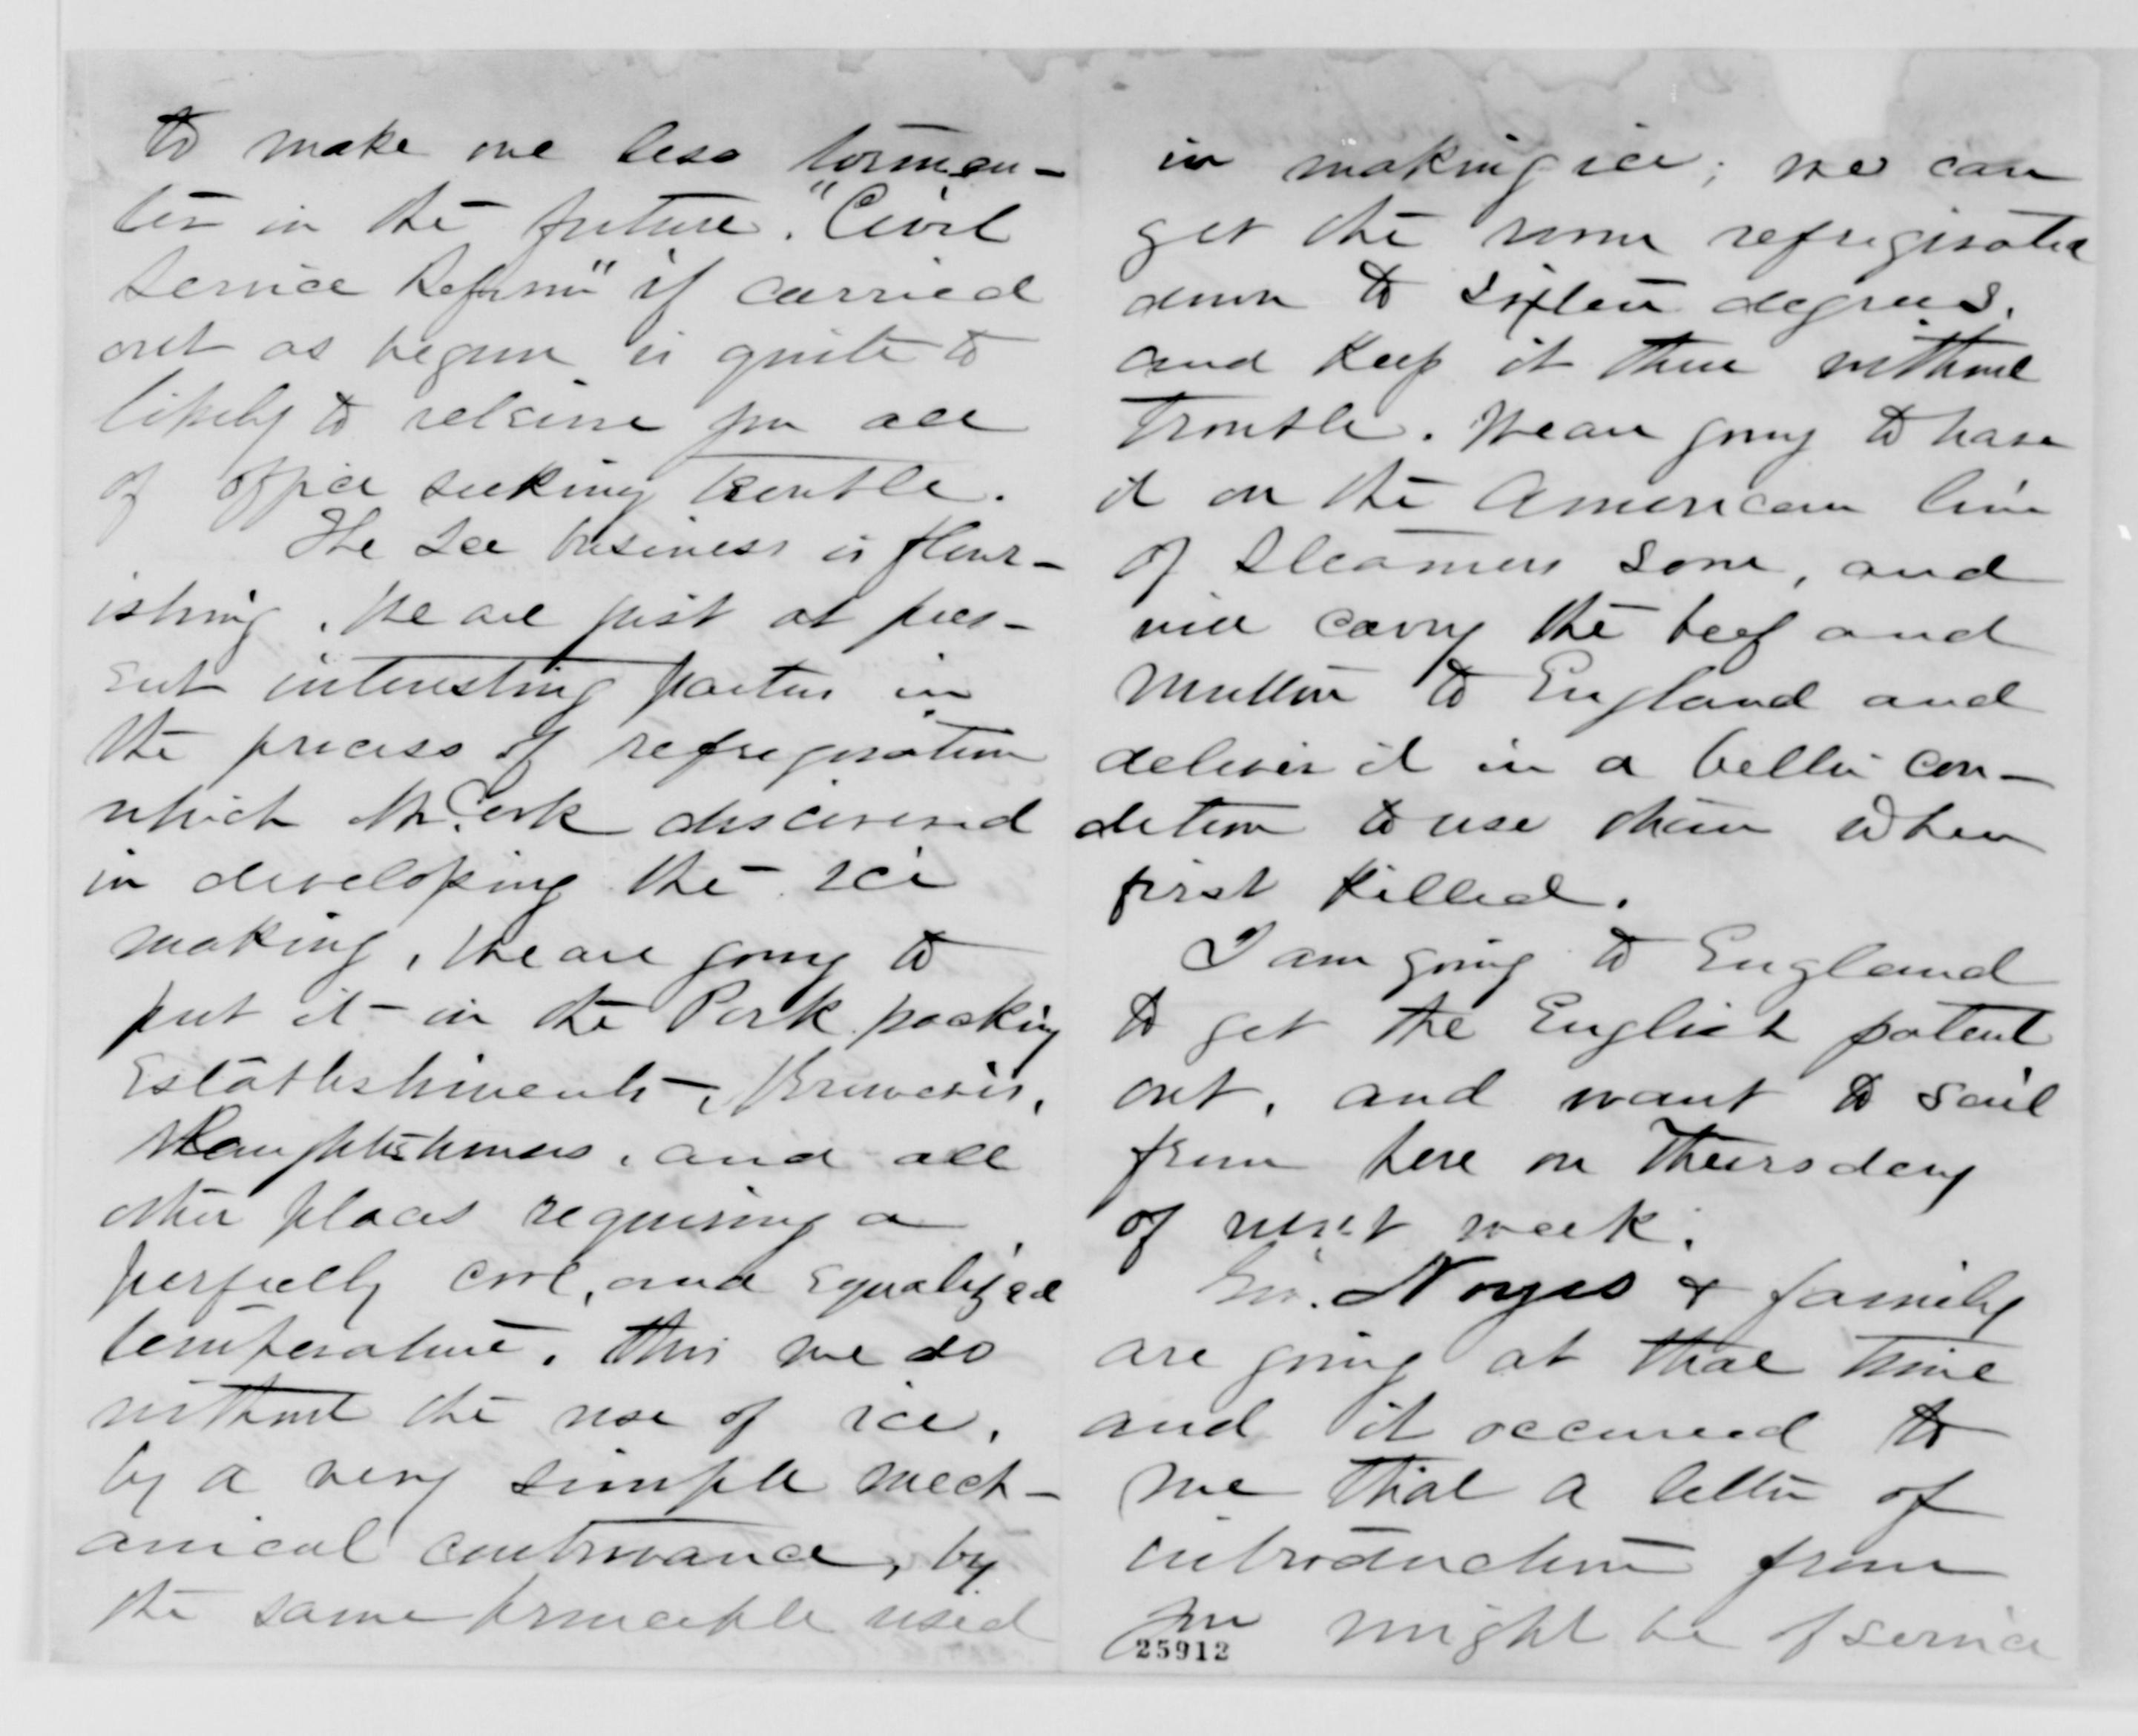 to make one less tormen-
tor in the future. "Civil
Service Reform" if carried
out as begun is quite to
likely to relieve you all
of office seeking trouble.
The Ice business is flour-
ishing. We are just at pres-
ent interesting parties in
the process of refrigeration
which Mr. discovered
in developing the ice
making. We are going to
put it in the Pork packing
Establishments, Breweries,
Slaughterhouses, and all
other places requiring a
perfectly cool, and equalized
temperature. This we do
without the use of ice,
by a very simple mech-
anical contrivance, by
the same principle used
in making ice; we can
get the room refrigerated
down to sixteen degrees,
and keep it there without
trouble. We are going to have
it on the American line
of Steamers soon, and
will carry the beef and
Mutton to England and
deliver it in a better con-
dition to use than when
first killed.
I am going to England
to get the English patent
out, and want to sail
from here on Thursday
of next week.
Gov. Noyes & family
are going at that time
and it occurred to
me that a letter of
introduction from
you might be of service
25912